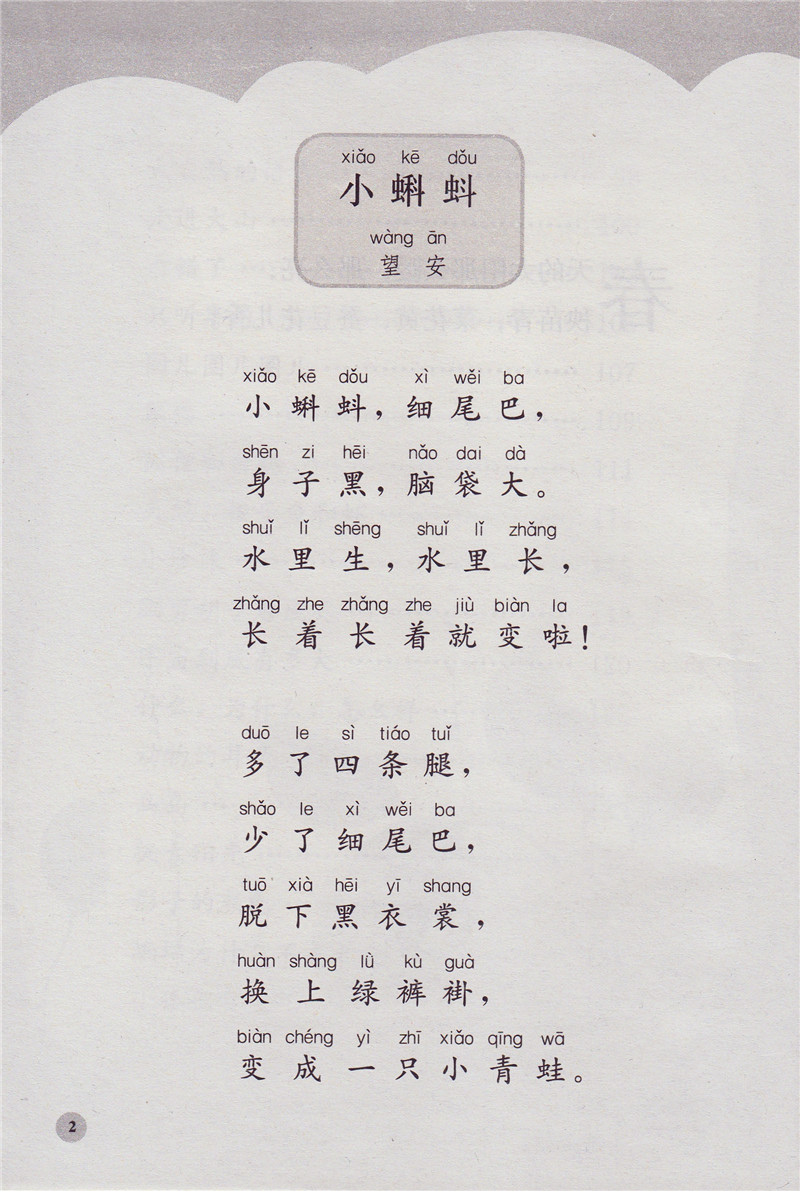 xiǎo kē dǒu
小蝌蚪
wàng ān
望安
xiǎo kē dǒu xì wěi ba
小蝌蚪，细尾巴，
shēn zi hēi nǎo dai dà
身子黑，脑袋大。
shuǐ lǐ shēng shuǐ lǐ zhǎng
水里生，水里长，
zhǎng zhe zhǎng zhe jiù biàn la
长着长着就变啦！
duō le sì tiáo tuǐ
多了四条腿，
shǎo le xì wěi ba
少了细尾巴，
tuō xià hēi yī shang
脱下黑衣裳，
huàn shàng lǜ kù guà
换上绿裤褂，
biàn chéng yì zhī xiǎo qīng wā
变成一只小青蛙。
2